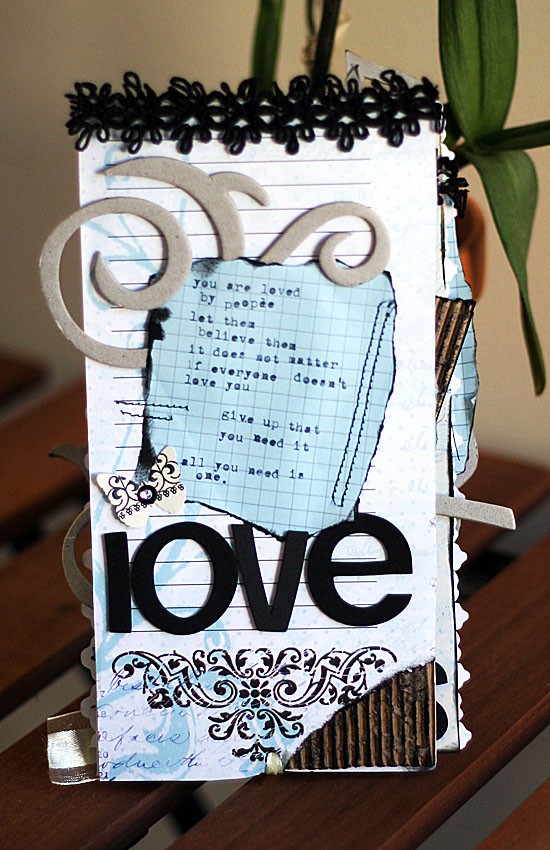 you are loved
by people
let them
believe them
it does not matter
if everyone doesn't
love you
give up that
you need it
all you need is
one.
love
s